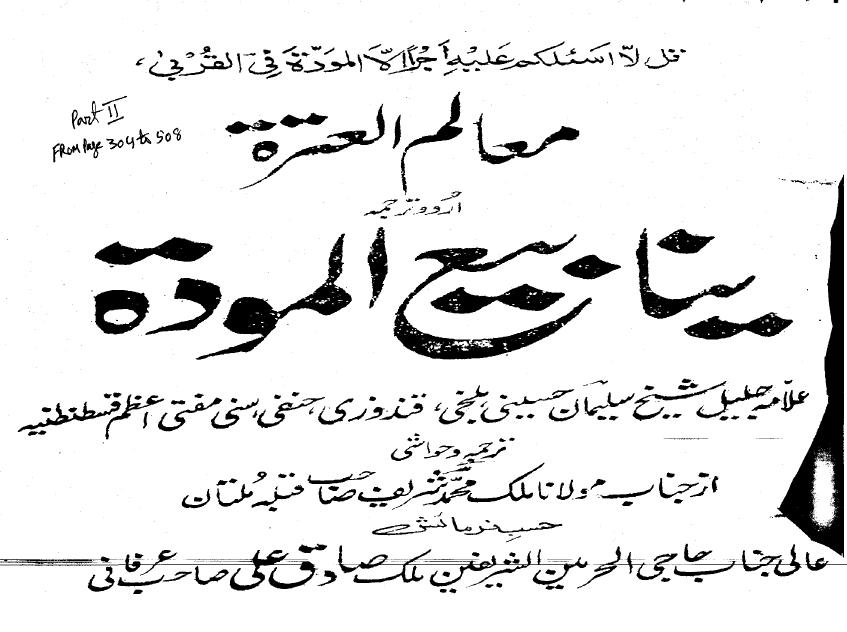 قل لّا اسئلکم علیہِ اَجْراً اِلّا المودّۃَ فِی القُربیٰ،
Part II
From Page 304 to 508
معالم العترۃ
اُردو ترجمہ
ینابیع المودۃ
علامہ جلیل شیخ سلیمان حسینی بلخی، قندوزی، حنفی، سنی مفتی اعظم قسطنطنیہ
ترجمہ و حواشی
از جناب مولانا ملک محمّد شریف صاحب قبلہ مُلتان
حسبِ فرمائش
عالی جناب حاجی الحرمین الشریفین ملک صادق علی صاحب عرفانی